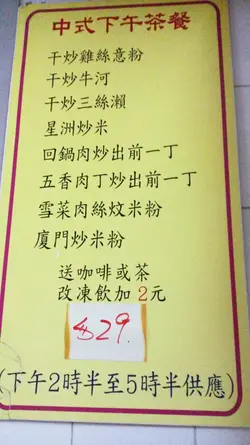 中式下午茶餐
干炒雞絲意粉
干炒牛河
干炒三絲瀨
星洲炒米
回鍋肉炒出前一丁
五香肉丁炒出前一丁
雪菜肉絲炆米粉
廈門炒米粉
送咖啡或茶
改凍飲加2元
$29.
(下午2時半至5時半供應)